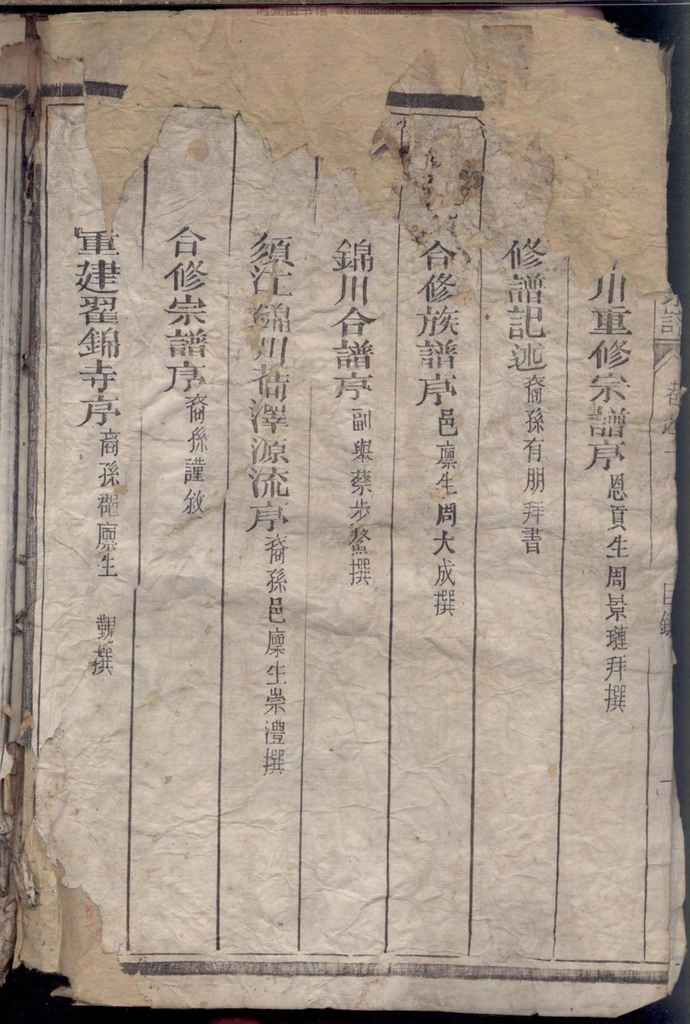 川重修宗譜序 恩貢生周景璉拜撰
修譜記述 裔孫有朋拜書
合修族譜序 邑廩生周大成撰
錦川合譜序 副舉蔡步鰲撰
須江錦川荷澤源流序 裔孫邑廩生崇澧撰
合修宗譜序 裔孫謹敘
重建翠錦寺序 裔孫 廩生 觀撰